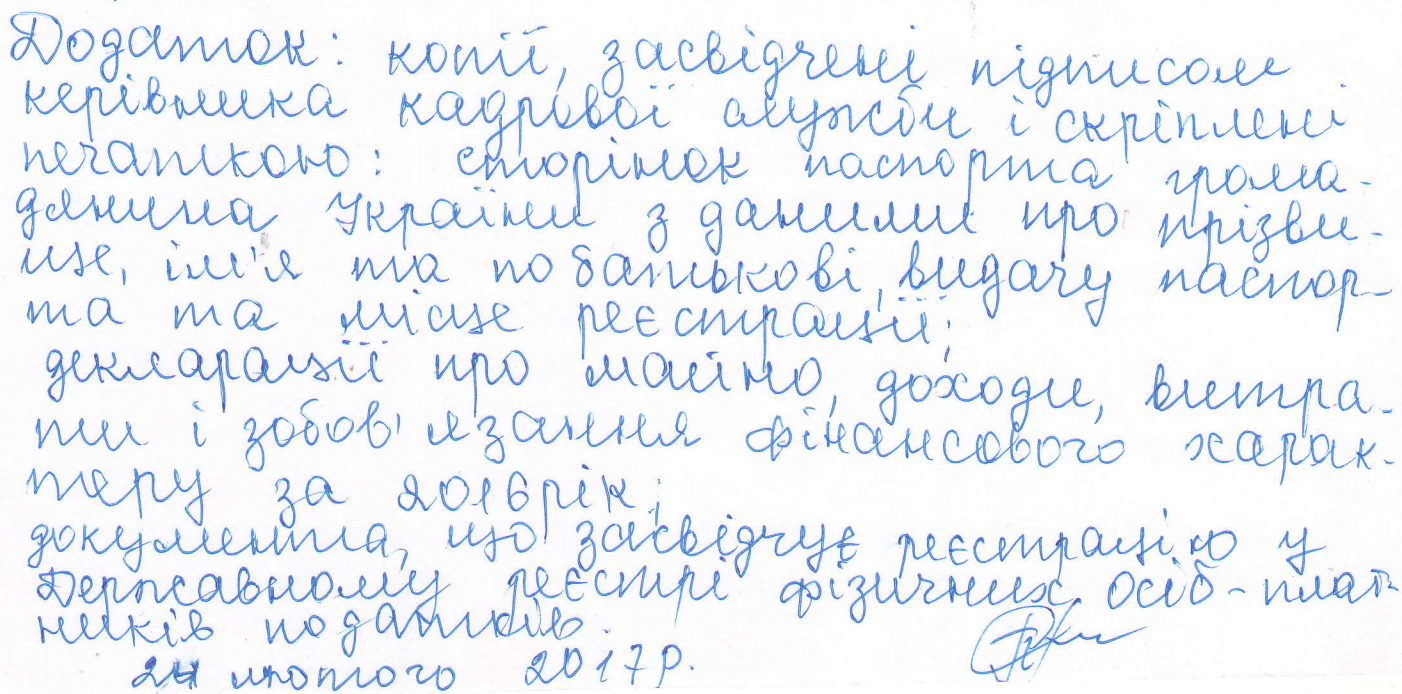 Додаток: копії, засвідчені підписом
керівника кадрової служби і скріплені
печаткою: сторінок паспорта грома-
дянина України з даними про прізви-
ще, ім'я та по батькові, видачу паспор-
та та місце реєстрації;
декларації про майно, доходи, витра-
ти і зобов'язання фінансового харак-
теру за 2016рік;
документа, що засвідчує реєстрацію у
Державному реєстрі фізичних осіб-плат-
ників податків.
24 лютого 2017р.